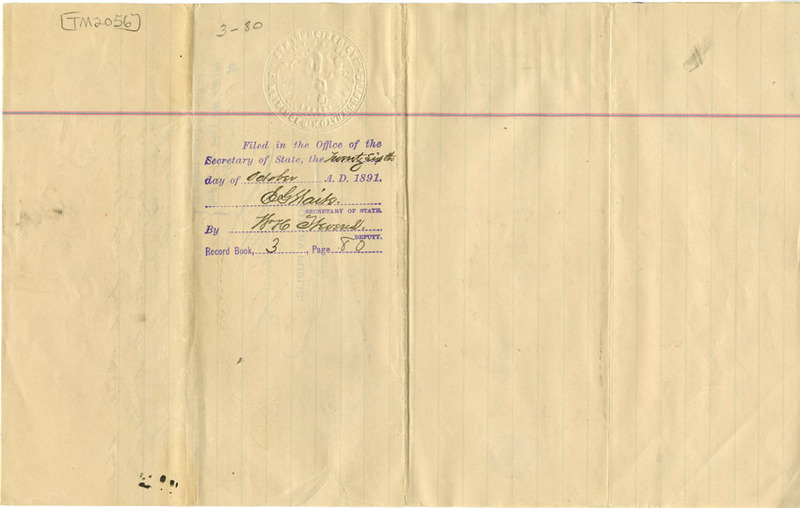 TM2056
3-80
Filed in the Office of the
Secretary of State, the twenty sixth
day of October A. D. 1891.
E G Waite.
SECRETARY OF STATE.
By W H
DEPUTY.
Record Book, 3, Page 80